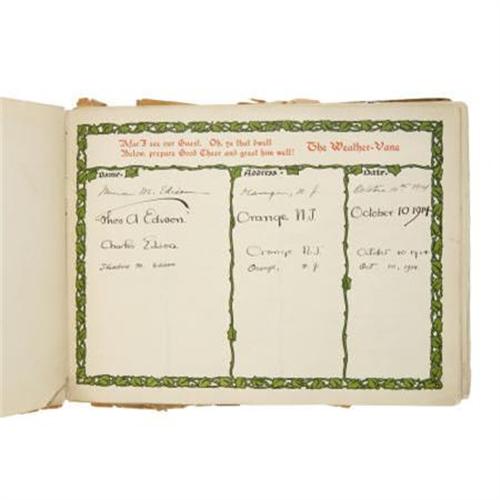 Afar I see our Guest. Oh, ye that dwell
Below, prepare Good Cheer and greet him well! The Weather-Vane
Name- Address- Date-
M. Edison N. J. October 10th 1914
Thos A Edison Orange N.J. October 10 1914
Charles Edison Orange N.J. October 10 1914
Theodore M. Edison Orange, N. J. Oct 10, 1914